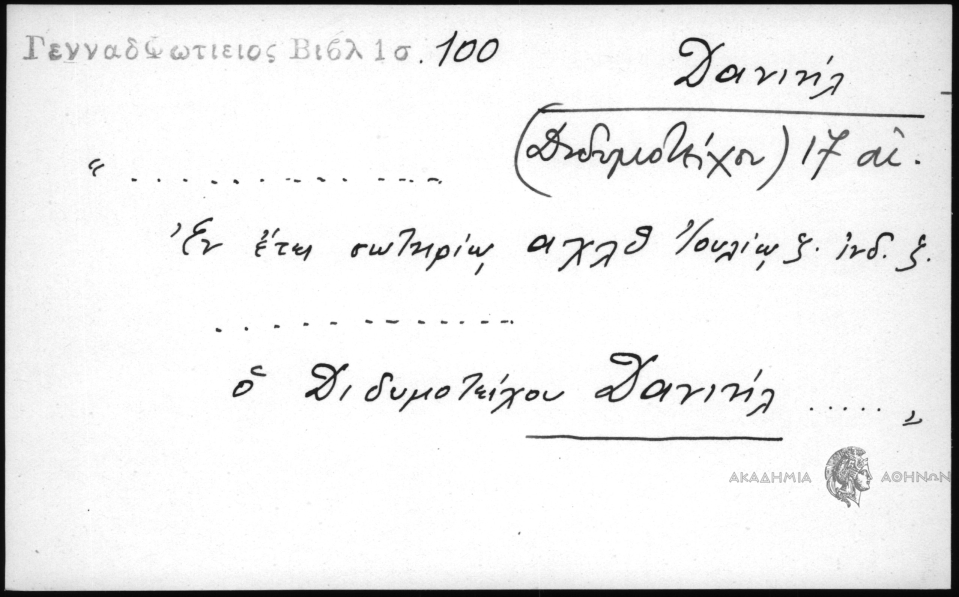 Γενναδ Φωτιειος Βιβλ 1σ. 100
Δανιήλ
(Διδυμοτείχου) 17 αἰ.
“ . . . . . . . . . . . . . .
Ἐν ἔτει σωτηρίῳ αχλθ Ἰουλίῳ ξ. ἰνδ. ξ.
. . . . . . . . . . . . . .
ὁ Διδυμοτείχου Δανιήλ ..... „
ΑΚΑΔΗΜΙΑ ΑΘΗΝΩΝ